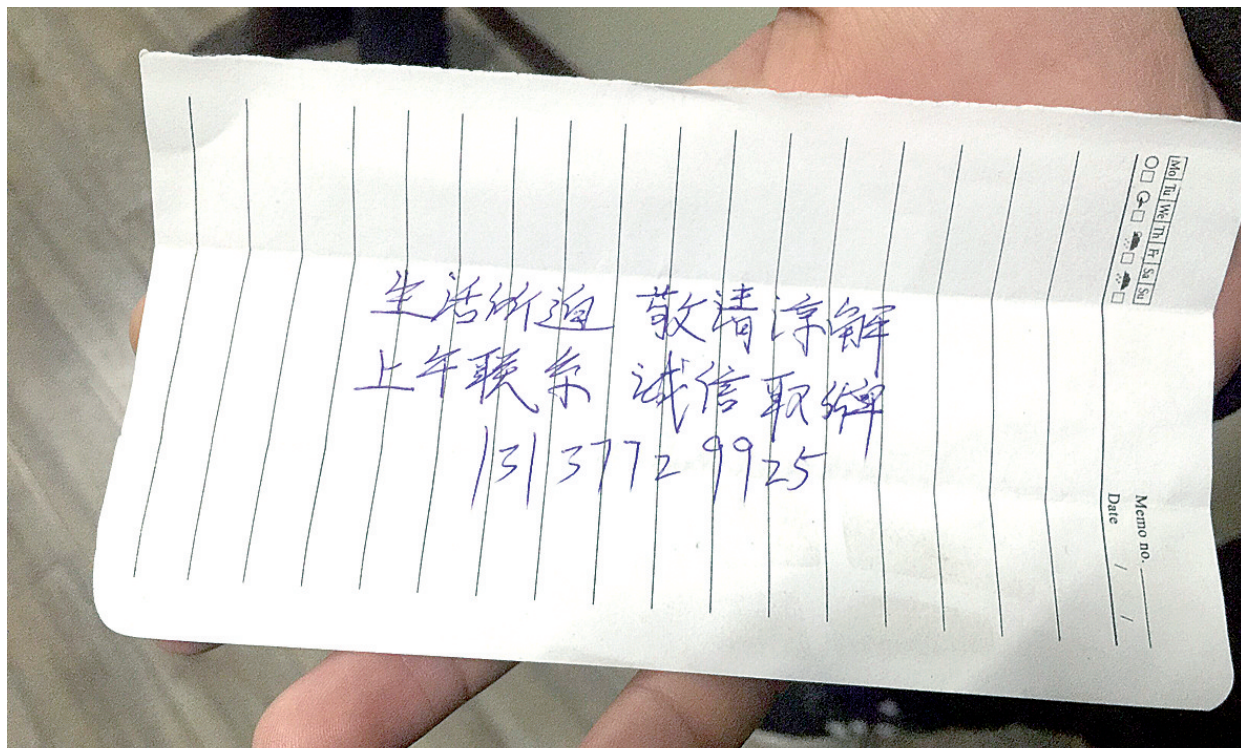 生活所迫 敬请谅解
上午联系 诚信取牌
13137729925
Mo Tu We Th Fr Sa Su
Memo no.
Date / /